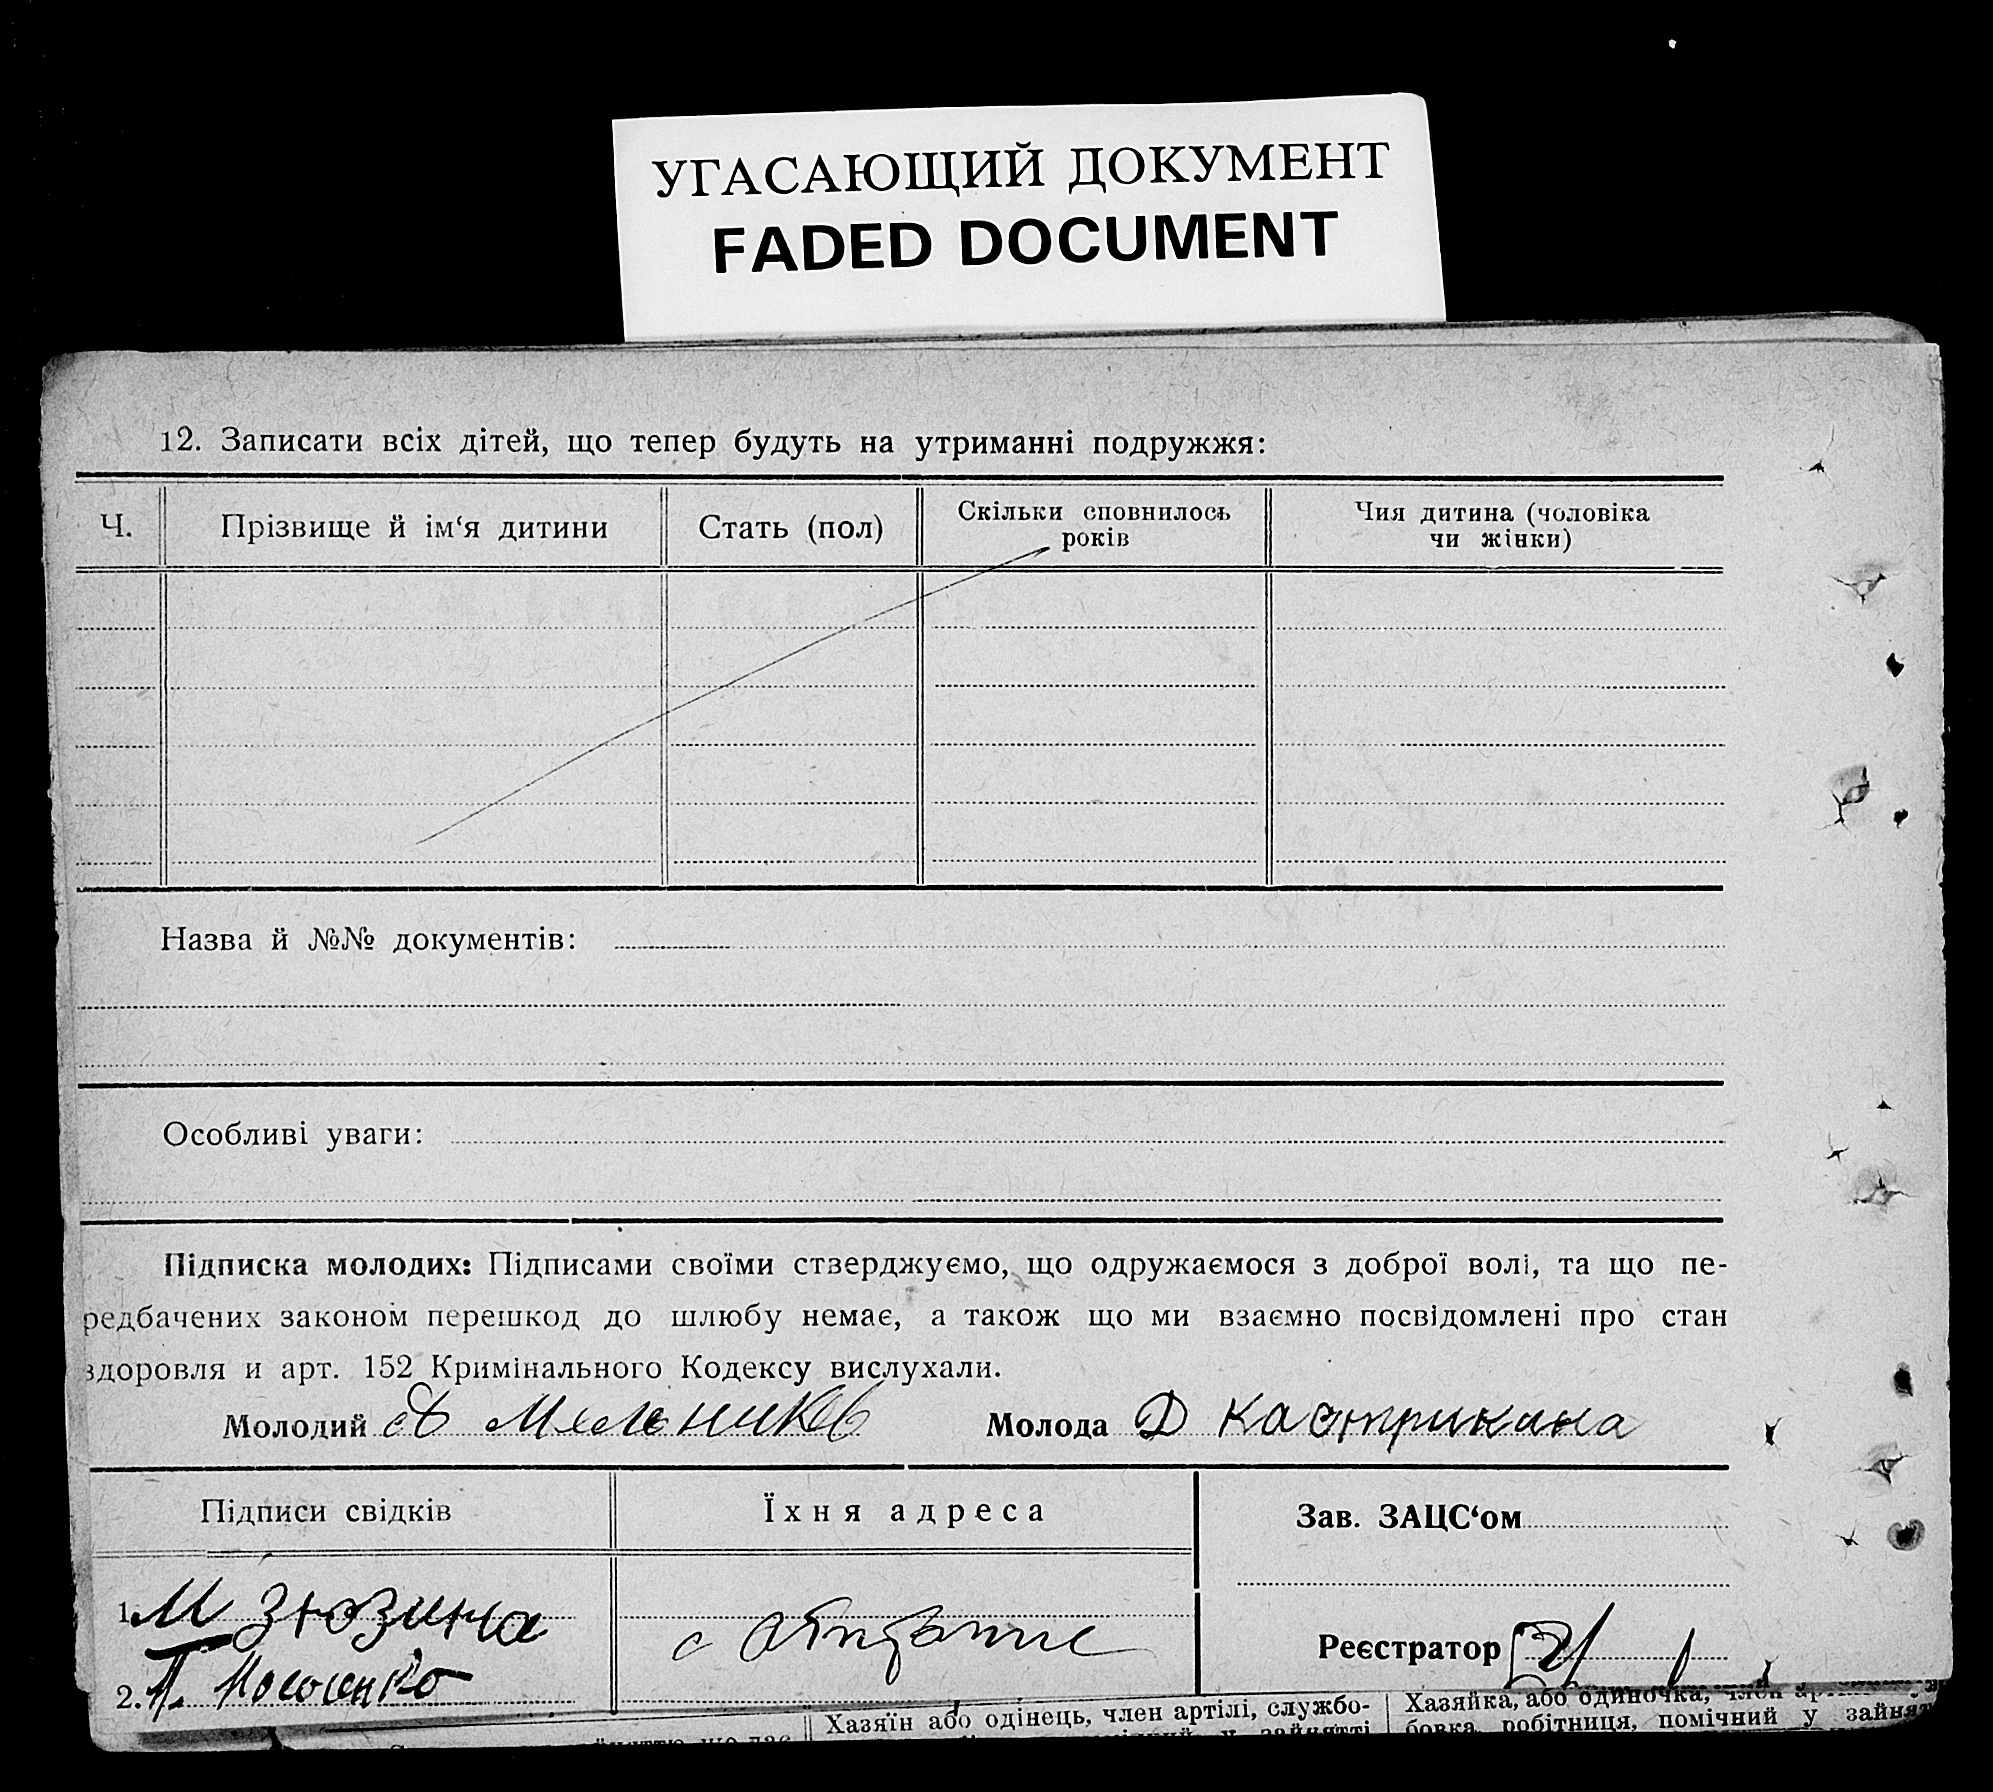 УГАСАЮЩИЙ ДОКУМЕНТ
FADED DOCUMENT
12. Записати всіх дітей, що тепер будуть на утриманні подружжя:
Ч. Прізвище й ім‘я дитини Стать (пол) Скільки сповнилось років Чия дитина (чоловіка чи жінки)
Назва й №№ документів:
Особливі уваги:
Підписка молодих: Підписами своїми стверджуємо, що одружаємося з доброї волі, та що пе-
редбачених законом перешкод до шлюбу немає, а також що ми взаємно посвідомлені про стан
здоровля и арт. 152 Кримінального Кодексу вислухали.
Молодий Мельников Молода Д Кастрикина
Підписи свідків Їхня адреса Зав. ЗАЦС‘ом
1. М Зюзина
Реєстратор
2.
Хазяїн або одінець, член артілі, службо- Хазяйка, або одиночка, член
бовка робітниця, помічний у зайнят